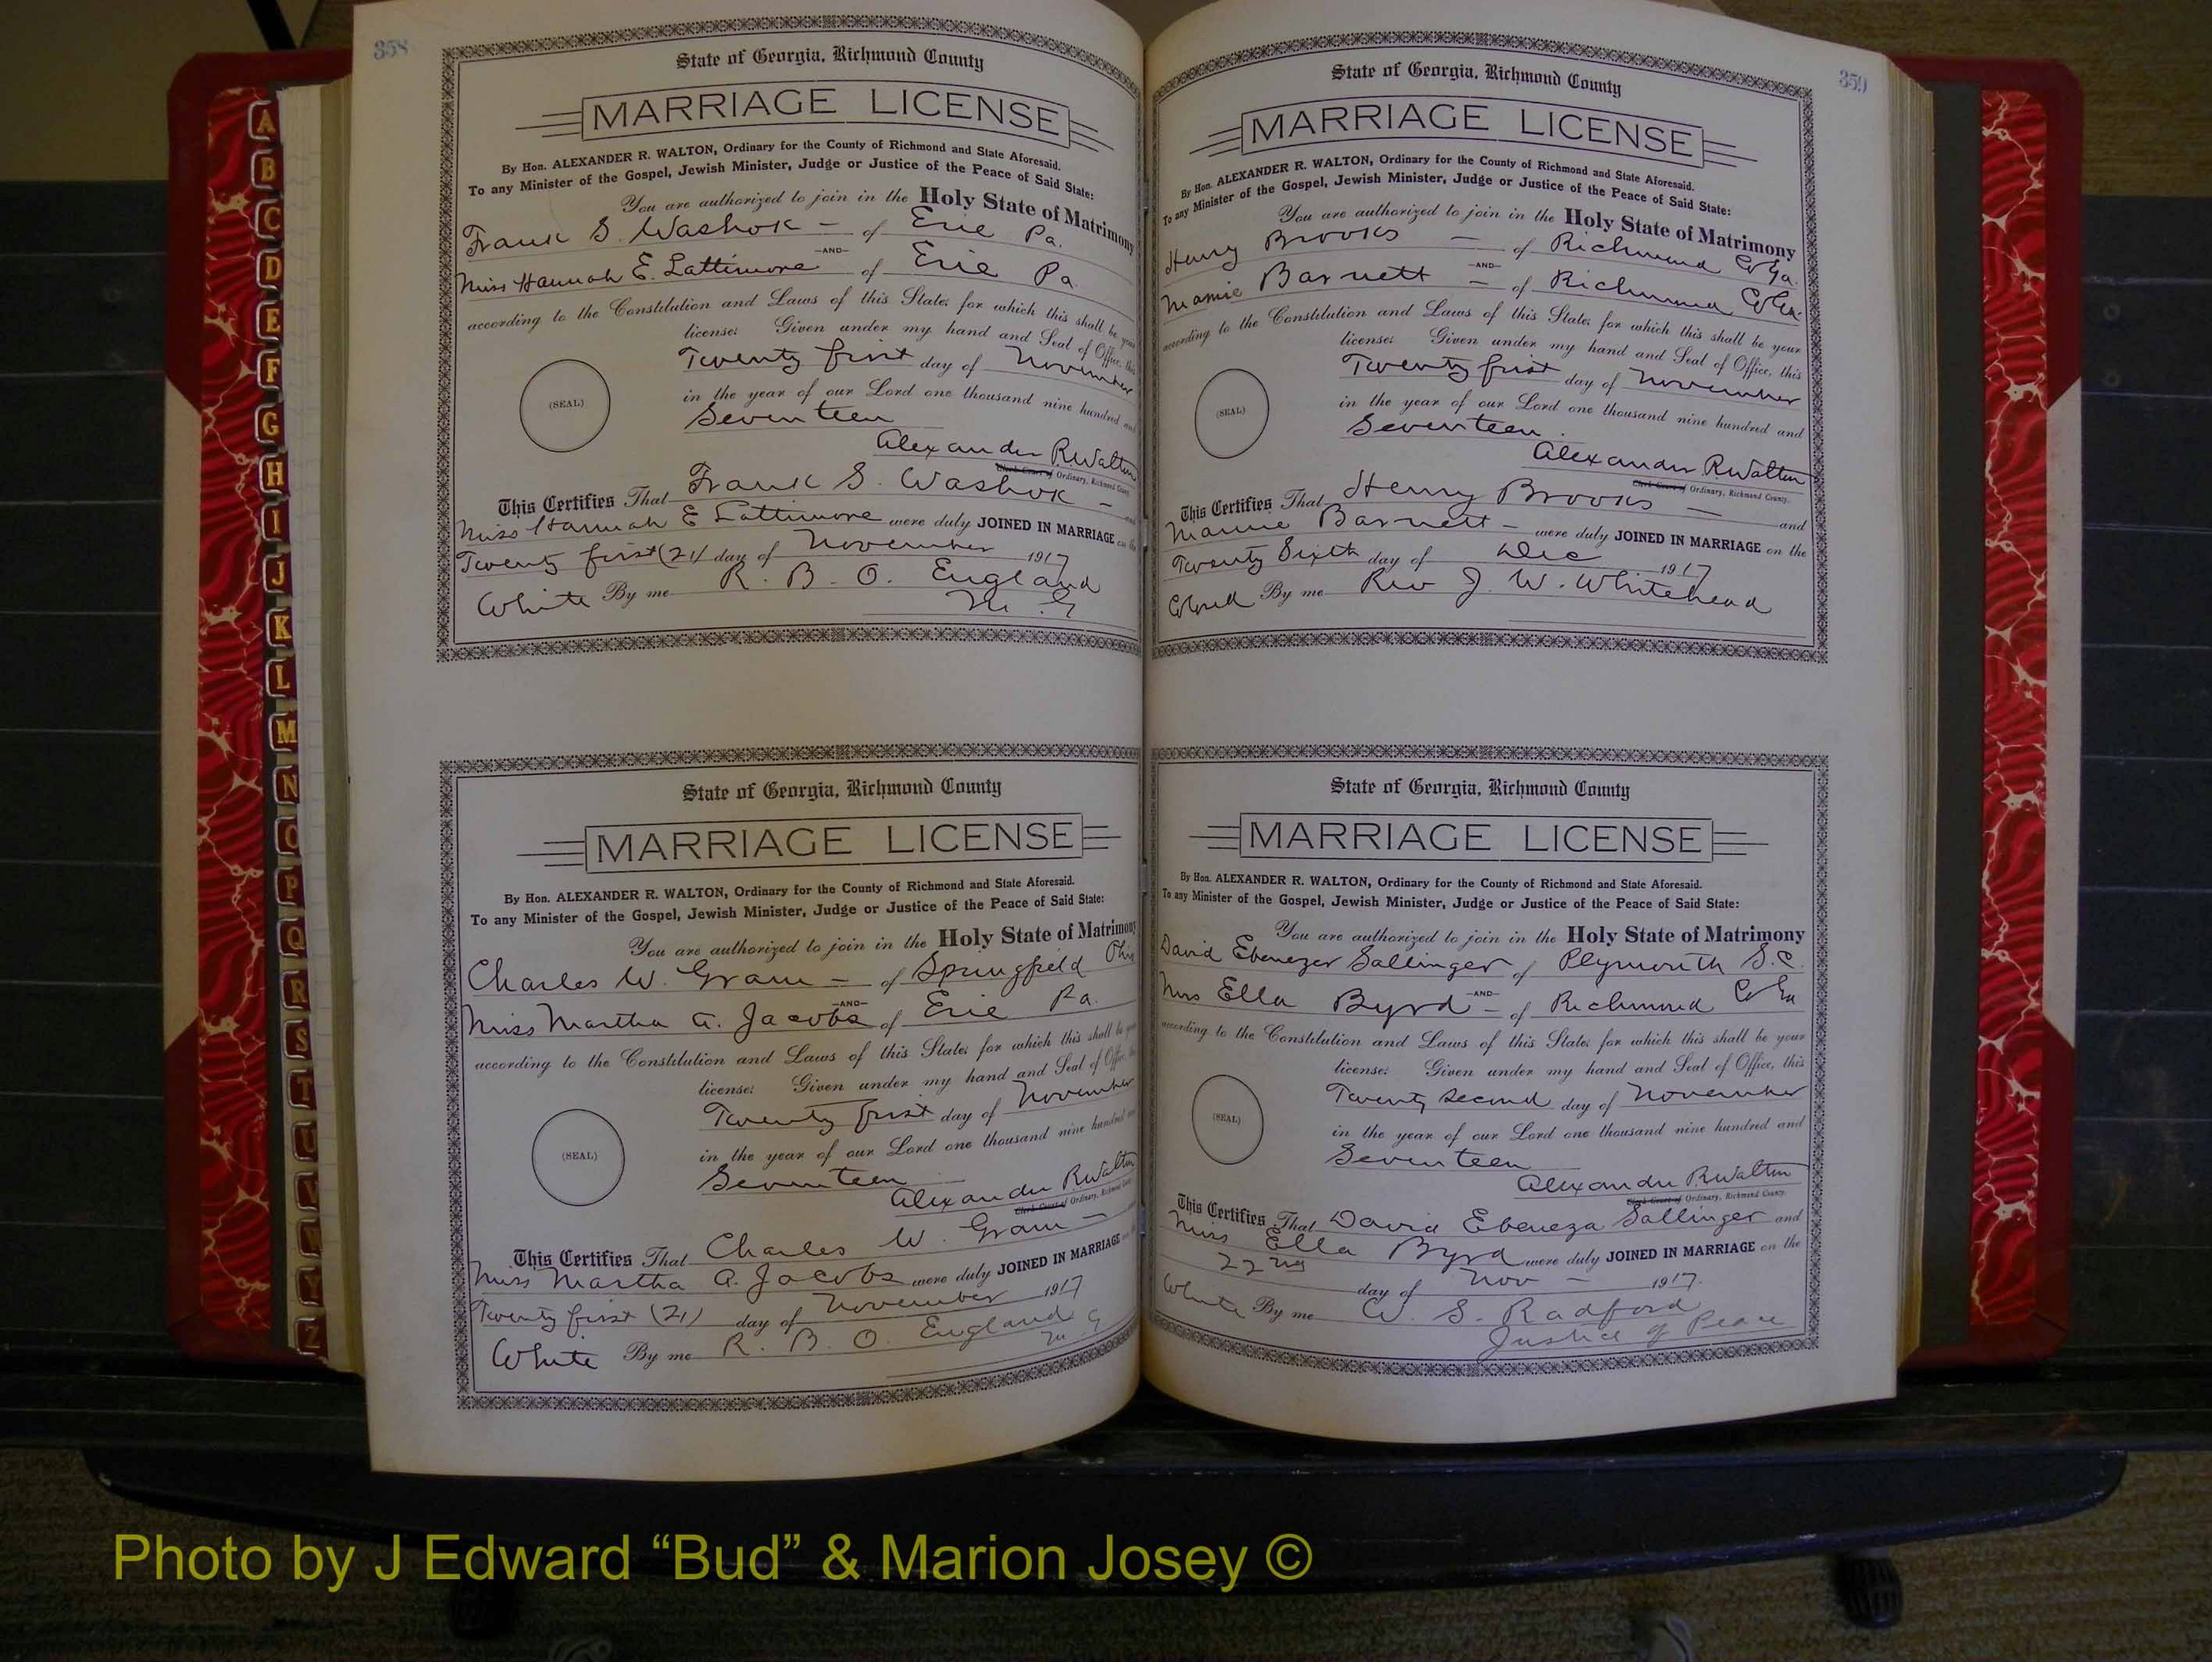 358
State of Georgia, Richmond County
MARRIAGE LICENSE
By Hon. ALEXANDER R. WALTON, Ordinary for the County of Richmond and State Aforesaid.
To any Minister of the Gospel, Jewish Minister, Judge or Justice of the Peace of Said State:
You are authorized to join in the Holy State of Matrimony
Frank S. Washok - of Erie Pa.
-AND-
Miss Hannah E. Lattimore of Erie Pa
according to the Constitution and Laws of this State; for which this shall be your
license: Given under my hand and Seal of Office, this
Twenty first day of November
(SEAL)
in the year of our Lord one thousand nine hundred and
Seventeen
Alexander R. Walton
Clerk Court of Ordinary, Richmond County.
This Certifies That Frank S. Washok -
Miss Hannah E Lattimore were duly JOINED IN MARRIAGE on the
Twenty first (21) day of November 1917
White By me R. B. O. England
M. G
State of Georgia, Richmond County
MARRIAGE LICENSE
By Hon. ALEXANDER R. WALTON, Ordinary for the County of Richmond and State Aforesaid.
To any Minister of the Gospel, Jewish Minister, Judge or Justice of the Peace of Said State:
You are authorized to join in the Holy State of Matrimony
Charles W. Gram - of Springfield Ohio
-AND-
Miss Martha A. Jacobs of Erie Pa.
according to the Constitution and Laws of this State; for which this shall be your
license: Given under my hand and Seal of Office, this
Twenty first day of November
(SEAL)
in the year of our Lord one thousand nine hundred and
Seventeen
Alexander R Walton
Clerk Court of Ordinary, Richmond County.
This Certifies That Charles W. Gram -
Miss Martha A. Jacobs were duly JOINED IN MARRIAGE on the
Twenty first (21) day of November 1917
White By me R. B. O. England
M. G
359
State of Georgia, Richmond County
MARRIAGE LICENSE
By Hon. ALEXANDER R. WALTON, Ordinary for the County of Richmond and State Aforesaid.
To any Minister of the Gospel, Jewish Minister, Judge or Justice of the Peace of Said State:
You are authorized to join in the Holy State of Matrimony
Henry Brooks - of Richmond Co Ga.
-AND-
Mamie Barnett - of Richmond Co Ga.
according to the Constitution and Laws of this State; for which this shall be your
license: Given under my hand and Seal of Office, this
Twenty first day of November
(SEAL)
in the year of our Lord one thousand nine hundred and
Seventeen.
Alexander R. Walton
Clerk Court of Ordinary, Richmond County.
This Certifies That Henry Brooks - and
Mamie Barnett - were duly JOINED IN MARRIAGE on the
Twenty Sixth day of Dec 1917
Colored By me Rev J. W. Whitehead
State of Georgia, Richmond County
MARRIAGE LICENSE
By Hon. ALEXANDER R. WALTON, Ordinary for the County of Richmond and State Aforesaid.
To any Minister of the Gospel, Jewish Minister, Judge or Justice of the Peace of Said State:
You are authorized to join in the Holy State of Matrimony
David Ebenezer Sallinger of Plymouth S.C.
-AND-
Miss Ella Byrd - of Richmond Co Ga
according to the Constitution and Laws of this State; for which this shall be your
license: Given under my hand and Seal of Office, this
Twenty second day of November
(SEAL)
in the year of our Lord one thousand nine hundred and
Seventeen
Alexander R. Walton
Clerk Court of Ordinary, Richmond County.
This Certifies That David Ebeneza Sallinger and
Miss Ella Byrd were duly JOINED IN MARRIAGE on the
22nd day of Nov - 1917.
White By me W. S. Radford
Justice of Peace
A
B
C
D
E
F
G
H
I
J
K
L
M
N
O
P
Q
R
S
T
U
V
W
Y
Z
Photo by J Edward “Bud” & Marion Josey ©